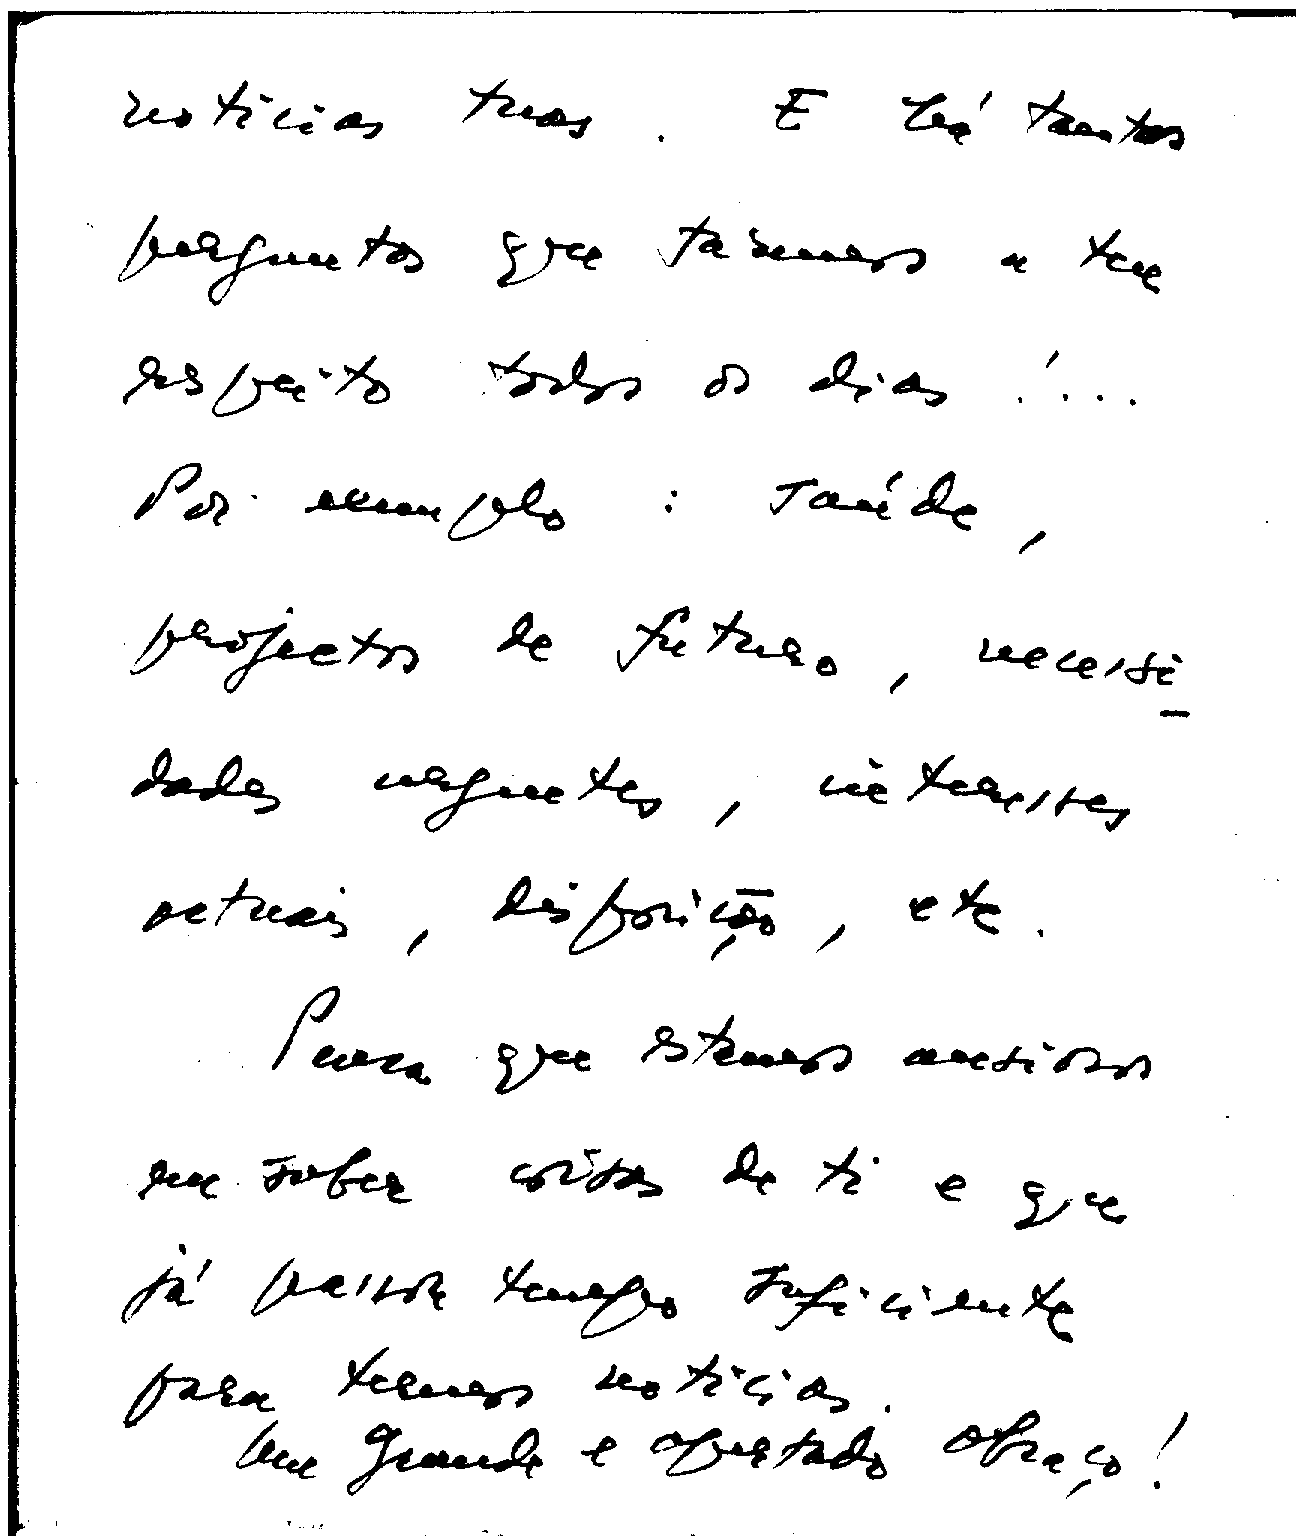 noticias tuas. E há tantas
perguntas que fazemos a teu
respeito todos os dias!...
Por exemplo: saúde,
projectos de futuro, necessi-
dades urgentes, interesses
actuais, disposição, etc.
Pensa que estamos ansiosos
em saber coisas de ti e que
já passou tempo suficiente
para termos noticias.
Um grande e apertado abraço!